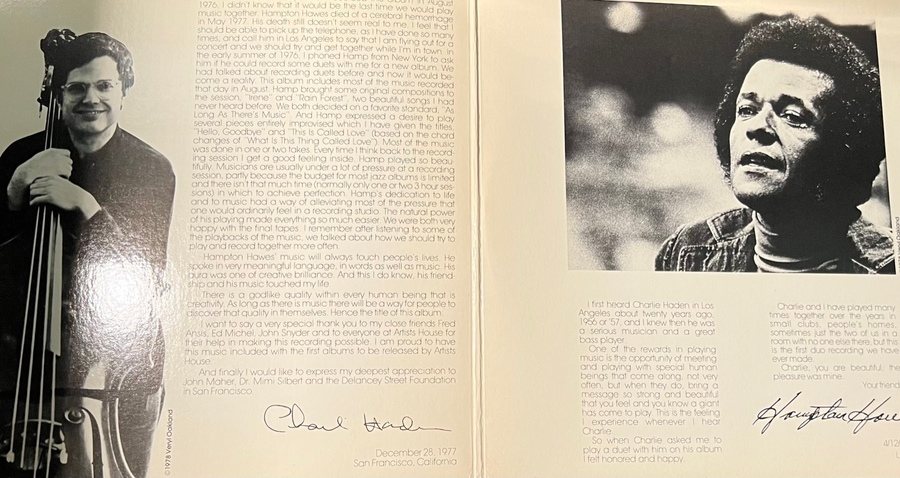 1976, I didn't know that it would be the last time we would play
music together. Hampton Hawes died of a cerebral hemorrhage
in May 1977. His death still doesn't seem real to me. I feel that I
should be able to pick up the telephone, as I have done so many
times, and call him in Los Angeles to say that I am flying out for a
concert and we should try and get together while I'm in town. In
the early summer of 1976, I phoned Hamp from New York to ask
him if he could record some duets with me for a new album. We
had talked about recording duets before and now it would be-
come a reality. This album includes most of the music recorded
that day in August. Hamp brought some original compositions to
the session, "Irene" and "Rain Forest", two beautiful songs I had
never heard before. We both decided on a favorite standard, "As
Long As There's Music". And Hamp expressed a desire to play
several pieces entirely improvised which I have given the titles,
"Hello, Goodbye" and "This Is Called Love" (based on the chord
changes of "What Is This Thing Called Love"). Most of the music
was done in one or two takes. Every time I think back to the record-
ing session I get a good feeling inside. Hamp played so beau-
tifully. Musicians are usually under a lot of pressure at a recording
session, partly because the budget for most jazz albums is limited
and there isn't that much time (normally only one or two 3 hour ses-
sions) in which to achieve perfection. Hamp's dedication to life
and to music had a way of alleviating most of the pressure that
one would ordinarily feel in a recording studio. The natural power
of his playing made everything so much easier. We were both very
happy with the final tapes. I remember after listening to some of
the playbacks of the music, we talked about how we should try to
play and record together more often.
Hampton Hawes' music will always touch people's lives. He
spoke in very meaningful language, in words as well as music. His
aura was one of creative brilliance. And this I do know, his friend-
ship and his music touched my life.
There is a godlike quality within every human being that is
creativity. As long as there is music there will be a way for people to
discover that quality in themselves. Hence the title of this album.
I want to say a very special thank you to my close friends Fred
Ansis, Ed Michel, John Snyder and to everyone at Artists House for
their help in making this recording possible. I am proud to have
this music included with the first albums to be released by Artists
House.
And finally I would like to express my deepest appreciation to
John Maher, Dr. Mimi Silbert and the Delancey Street Foundation
in San Francisco.
Charlie Haden
December 28, 1977
San Francisco, California
©1978 Veryl Oakland
I first heard Charlie Haden in Los
Angeles about twenty years ago,
1956 or '57, and I knew then he was
a serious musician and a great
bass player.
One of the rewards in playing
music is the opportunity of meeting
and playing with special human
beings that come along, not very
often, but when they do, bring a
message so strong and beautiful
that you feel and you know a giant
has come to play. This is the feeling
I experience whenever I hear
Charlie.
So when Charlie asked me to
play a duet with him on his album
I felt honored and happy.
Charlie and I have played many
times together over the years in
small clubs, people's homes,
sometimes just the two of us in a
room with no one else there, but this
is the first duo recording we have
ever made.
Charlie, you are beautiful; the
pleasure was mine.
Your friend
Hampton Hawes
4/12